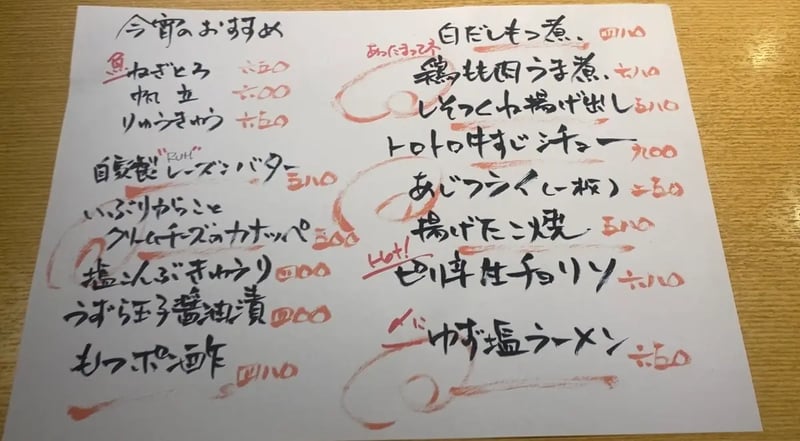 今宵のおすすめ
魚 ねぎとろ 六五〇
帆立 六〇〇
りゅうきゅう 六五〇
自家製 "RUM" レーズンバター 三八〇
いぶりがっこと
クリームチーズのカナッペ 五〇〇
塩こんぶきゅうり 四〇〇
うずら玉子醤油漬 四〇〇
もつポン酢 四八〇
白だしもつ煮、 四八〇
あったまってネ
鶏もも肉うま煮、 六八〇
しそつくね揚げ出し 五八〇
トロトロ牛すじシチュー 九〇〇
あじフライ(一枚) 二五〇
揚げたこ焼 五八〇
Hot!
ピリ辛生チョリソ 六八〇
〆に ゆず塩ラーメン 六五〇